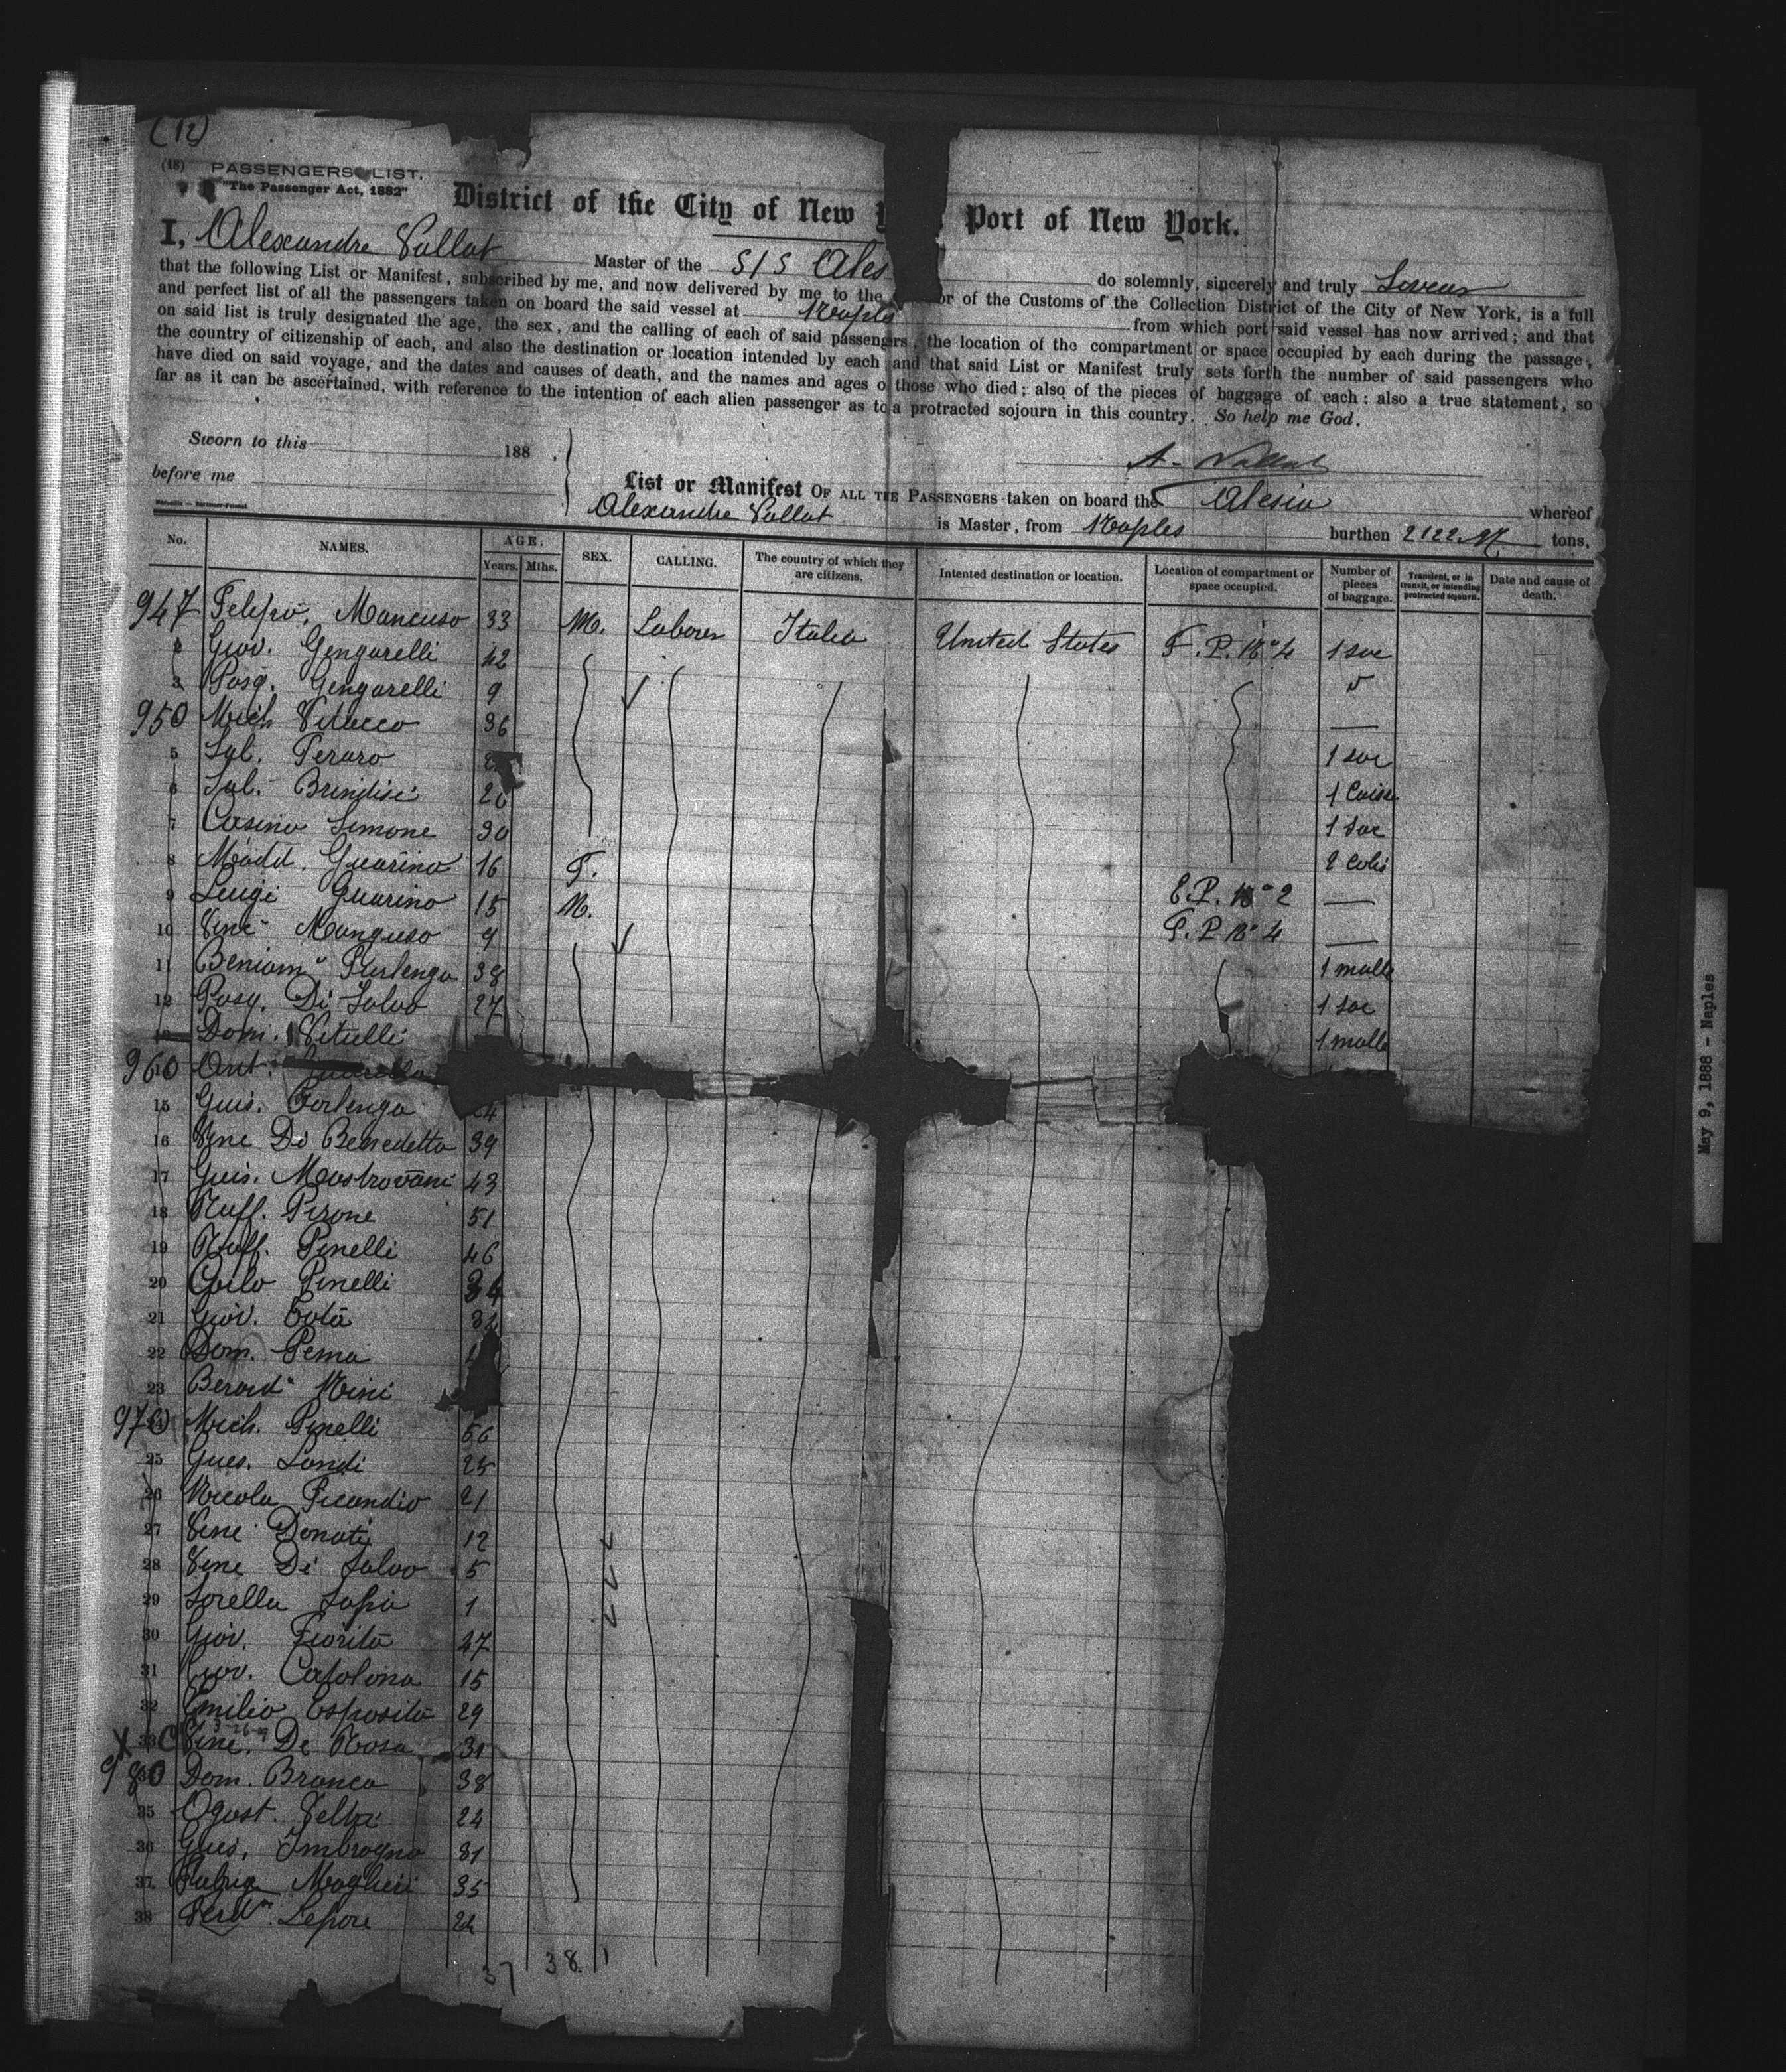 (12)
(18) PASSENGERS LIST.
"The Passenger Act, 1882"
District of the City of New Y Port of New York.
I, Alexandre Vallat Master of the S/S Ales do solemnly, sincerely and truly
that the following List or Manifest, subscribed by me, and now delivered by me to the or of the Customs of the Collection District of the City of New York, is a full
and perfect list of all the passengers taken on board the said vessel at Naples from which port said vessel has now arrived; and that
on said list is truly designated the age, the sex, and the calling of each of said passengers, the location of the compartment or space occupied by each during the passage,
the country of citizenship of each, and also the destination or location intended by each and that said List or Manifest truly sets forth the number of said passengers who
have died on said voyage, and the dates and causes of death, and the names and ages of those who died; also of the pieces of baggage of each: also a true statement, so
far as it can be ascertained, with reference to the intention of each alien passenger as to a protracted sojourn in this country. So help me God.
Sworn to this 188 .
before me
A. Vallat
List or Manifest OF ALL THE PASSENGERS taken on board the Alesia whereof
Alexandre Vallat is Master, from Naples burthen 2122 tons.
No. NAMES. AGE. Years. Mths. SEX. CALLING. The country of which they are citizens. Intented destination or location. Location of compartment or space occupied. Number of pieces of baggage. Transient, or in transit, or intending protracted sojourn. Date and cause of death.
947 Mancuso 33 M. Laborer Italia United States F. P. No 4 1 sac
2 Giov. Gengarelli 42
3 Pasq. Gengarelli 9
950 Mich Vitucco 36
5 Sal. Peraro 1 sac
6 Sal. Brindisi 26 1 Caisse
7 Casino Simone 30 1 sac
8 Madd. Guarino 16 F. 2 colis
9 Luigi Guarino 15 M. E.P. No 2
10 Vinc Manguso 9 F. P No 4
11 Beniam 38 1 malle
12 Pasq. Di Salvo 27 1 sac
13 Dom. Vitulli 1 malle
960 Ant.
15 Gius. 24
16 Vinc Di Benedetto 39
17 Gius. Mastrovani 43
18 Raff. Pirone 51
19 Raff. Pinelli 46
20 Carlo Pinelli 34
21 Giov. Cota
22 Dom. Pema
23 Berard Nini
970 Mich. Pinelli 56
25 Gius. Landi 25
26 Nicola Picandio 21
27 Vinc Donati 12
28 Vinc Di Salvo 5
29 Sorella Sofia 1
30 Giov. Fiorito 47
31 Giov. Catalona 15
32 Emilio Esposito 29
3-26-09
X 33 C Vinc. De Rosa 31
980 Dom. Branca 38
35 Ogost. 22
36 Gius. Imbrogno 31
37 Magheri 35
38 Ferd. Lepore 22
37 38. 1
May 9, 1888 - Naples